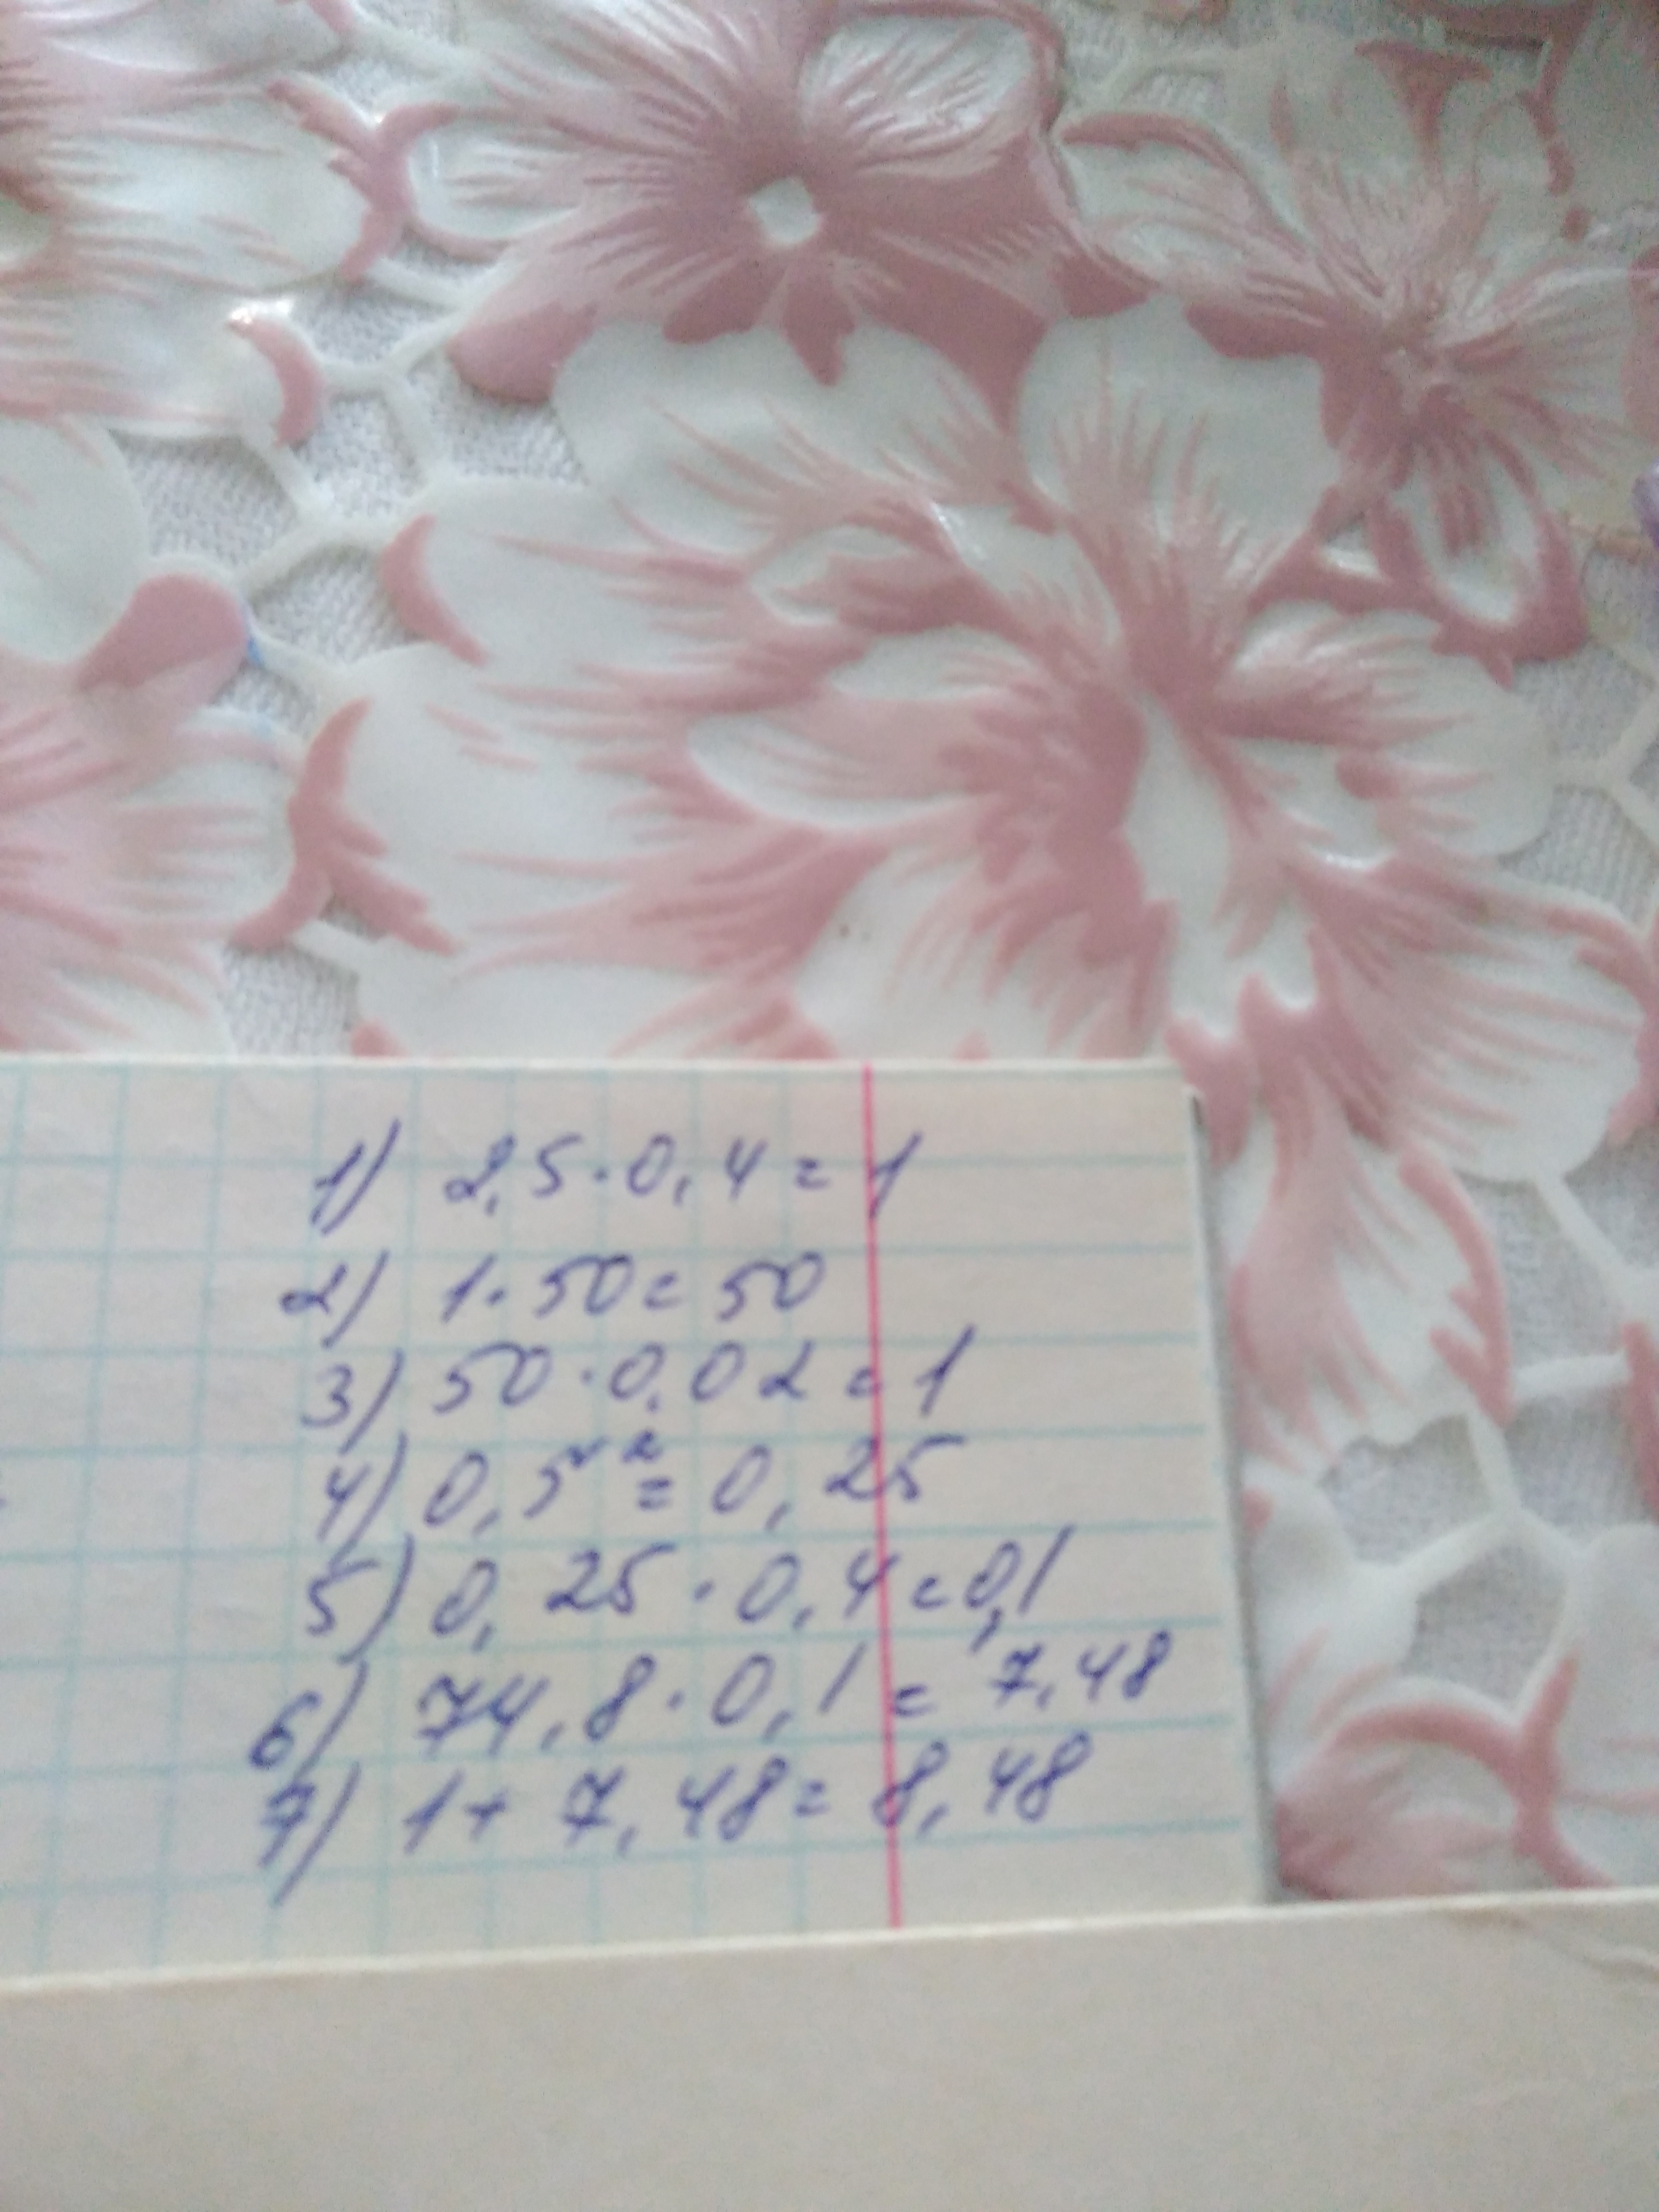 1) 2,5·0,4=1
2) 1·50=50
3) 50·0,02=1
4) 0,5²=0,25
5) 0,25·0,4=0,1
6) 74,8·0,1=7,48
7) 1+7,48=8,48